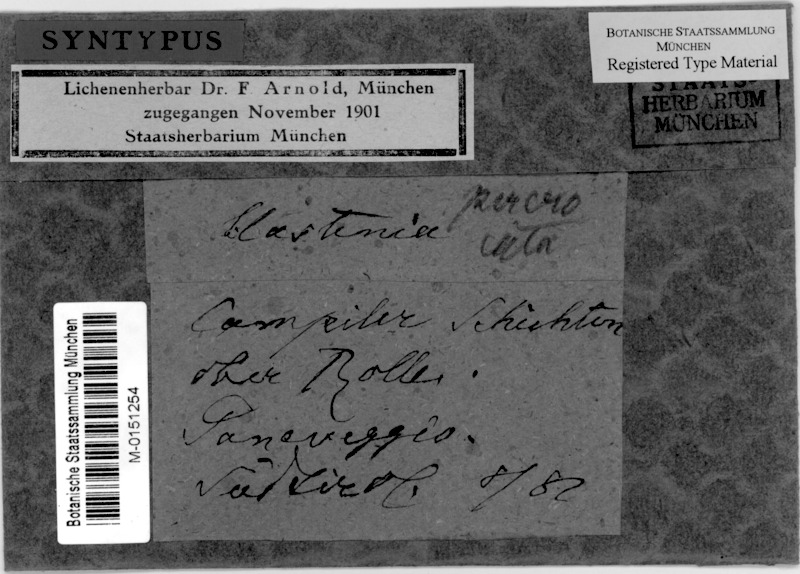 SYNTYPUS
Lichenenherbar Dr. F Arnold, München
zugegangen November 1901
Staatsherbarium München
BOTANISCHE STAATSSAMMLUNG
MÜNCHEN
Registered Type Material
STAATS-
HERBARIUM
MÜNCHEN
Blastenia percro
cata
Campiler Schichten
ober Rolle.
Paneveggio.
Südtirol 8/82
Botanische Staatssammlung München
M-0151254